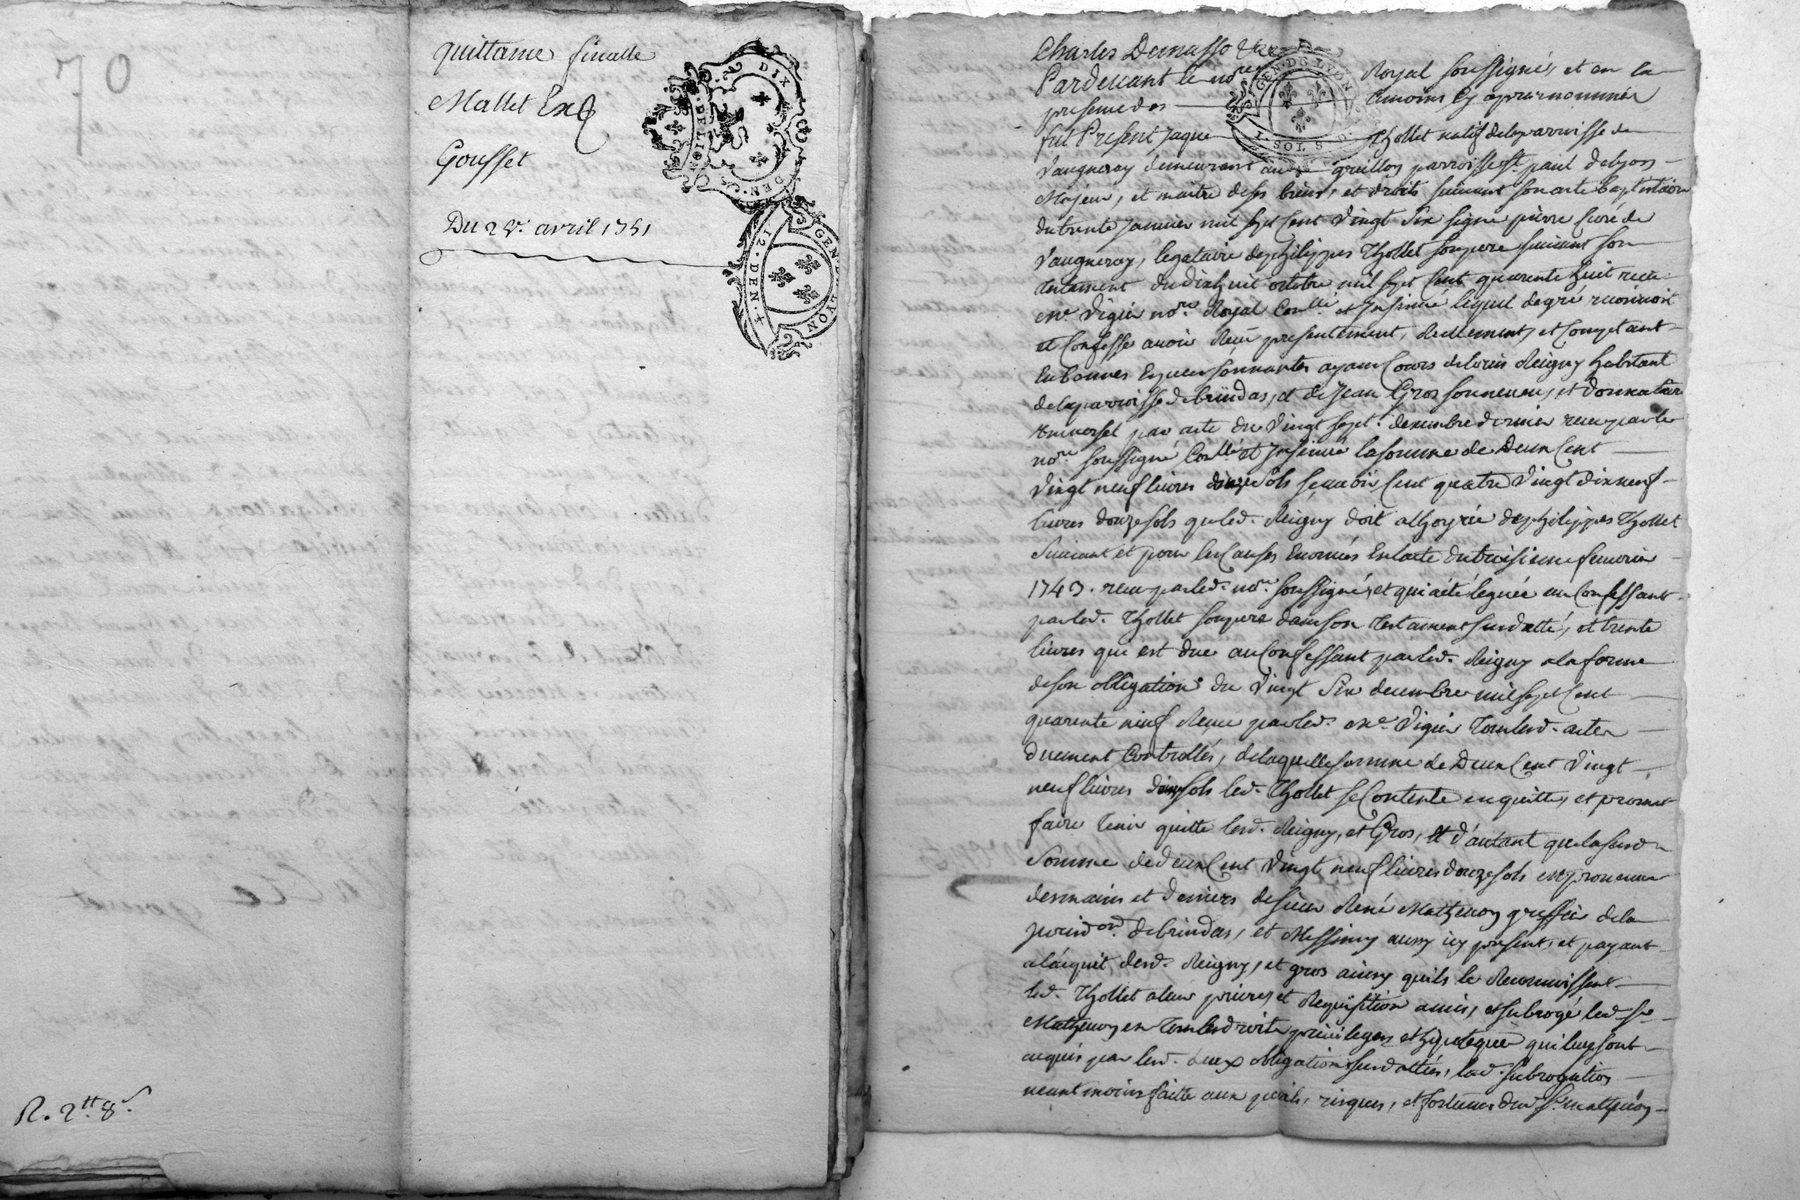 70
quittance finalle
Mallet
Gousset
Du 28e. avril 1751
R. 2tt 8s
DIX
DEN.
12. DEN.
GEN. LYON
GEN. DE LYON
SOLS
Charles Demasso &c
Pardevant le nore Royal soussigné, et en la
presence des temoins cy apres nommés
fut Present Jaque Thollet natif de la parroisse de
Vaugneray demeurant au parroisse st paul de Lyon
Majeur, et maitre de ses biens, et droits suivant son acte baptistaire
du trente Janvier mil sept cent vingt six signé pierre curé de
Vaugneray, legataire de philippes Thollet son pere suivant son
testament du dix huit octobre mil sept cent quarente huit receu
me. Vigier nore. Royal Conllé. et Insinué lequel de gré reconnoit
et confesse avoir Receu presentement, Reellement, et Comptant
En bonnes Especes sonnantes ayant Cours de Reigny habitant
de la parroisse de brindas, et de Jean Gros son neveu, et Donnataire
universel par acte du vingt sept. decembre dernier receu par le
nore soussigné Conllé et Insinué la somme de Deux Cent
Vingt neuf livres douze sols sçavoir, Cent quatre Vingt dix neuf
livres douze sols que led. Reigny doit a l'hoyrie de philippes Thollet
Suivant et pour les Causes Enoncées En l'acte du troisieme fevrier
1743. receu par led. nore. soussigné, et qui a eté leguée au Confessant
par led. Thollet son pere dans son testament susdatté, et trente
livres qui est due au Confessant par led. Reigny a la forme
de son obligation du Vingt Six decembre mil sept Cent
quarente neuf Receue par led. me. Vigier tous lesd. actes
duement Controllés, de laquelle somme de Deux Cent Vingt
neuf livres douze sols led. Thollet se Contente en quitte, et promet
faire tenir quitte lesd. Reigny, et Gros, et d'autant que la susd.
Somme de deux Cent Vingt neuf livres douze sols est provenue
des mains et deniers de sieur René Mathevon greffier de la
jurisdon. de brindas, et Messimy aussy icy present, et payant
a l'acquit desd. Reigny, et gros ainsy qu'ils le Reconnoissent
led. Thollet a leur prieres, et Requisition a mis, et subrogé led. sr
Mathevon en tous les droits privileges et hypoteques qui luy sont
acquis par lesd. deux obligations susdattées, lad. subrogation
neantmoins faite aux perils, risques, et fortunes dud. sr. Mathevon